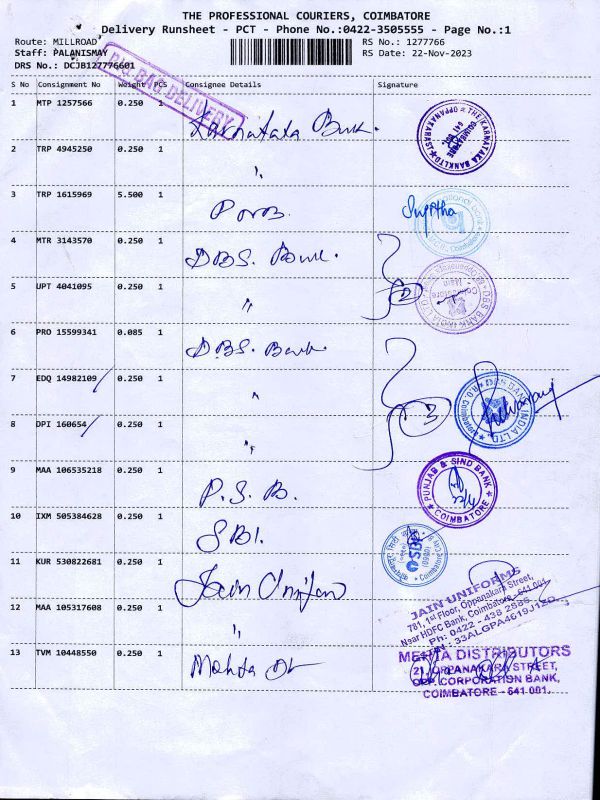 THE PROFESSIONAL COURIERS, COIMBATORE
Delivery Runsheet - PCT - Phone No.:0422-3505555 - Page No.:1
Route: MILLROAD RS No.: 1277766
Staff: PALANISMAY RS Date: 22-Nov-2023
DRS No.: DCJB127776601
BAG DELIVERY
S No Consignment No Weight PCS Consignee Details Signature
1 MTP 1257566 0.250 1 Karnataka Bank.
THE KARNATAKA BANK LTD
2 TRP 4945250 0.250 1 "
3 TRP 1615969 5.500 1 PNB.
4 MTR 3143570 0.250 1 DBS. Bank.
5 UPT 4041095 0.250 1 " 2
DBS BANK INDIA LTD
6 PRO 15599341 0.085 1 DBS. Bank
7 EDQ 14982109 0.250 1 "
3
DBS BANK INDIA LTD
8 DPI 160654 0.250 1 "
9 MAA 106535218 0.250 1 P.S.B.
PUNJAB & SIND BANK
COIMBATORE
10 IXM 505384628 0.250 1 SBI.
SBI
11 KUR 530822681 0.250 1 Jain Uniform
JAIN UNIFORMS
781, 1st Floor, Oppanakara Street,
Near HDFC Bank, Coimbatore - 641 001.
Ph: 0422 - 438 2586
12 MAA 105317608 0.250 1 "
13 TVM 10448550 0.250 1 Mehta
MEHTA DISTRIBUTORS
21, OPPANAKARA STREET,
OPP. CORPORATION BANK,
COIMBATORE - 641 001.